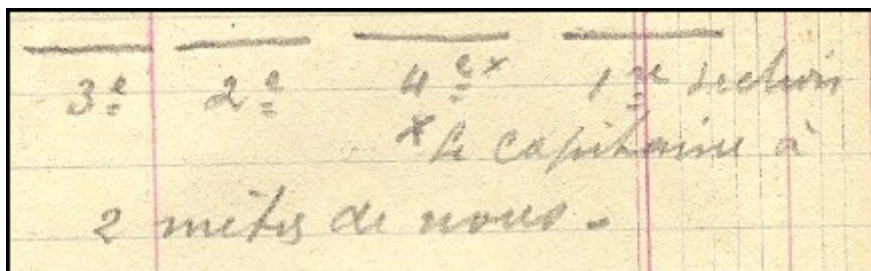 3e 2e 4e x 1re section
x Le capitaine à
2 mètres de nous.